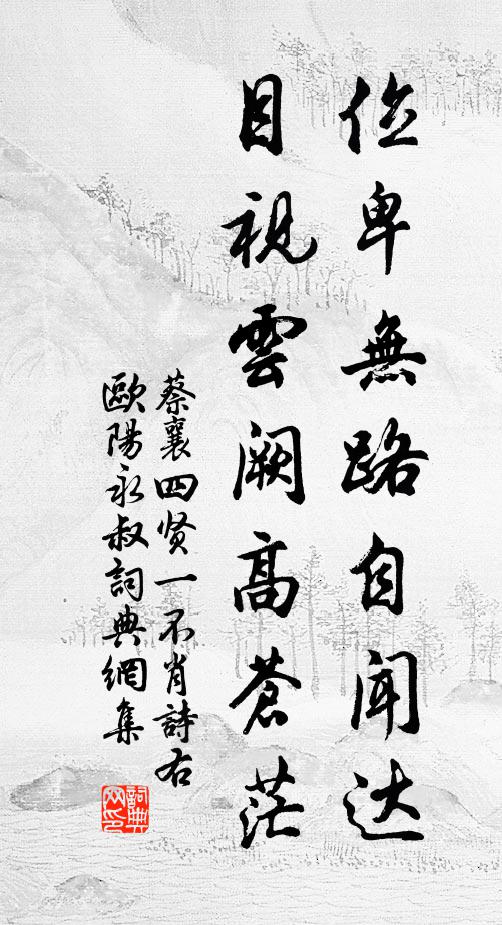 位卑無路自闻达
目視雲阙高蒼茫
蔡襄四贤一不肖詩右
歐陽永叔詞典網集
詞典网印